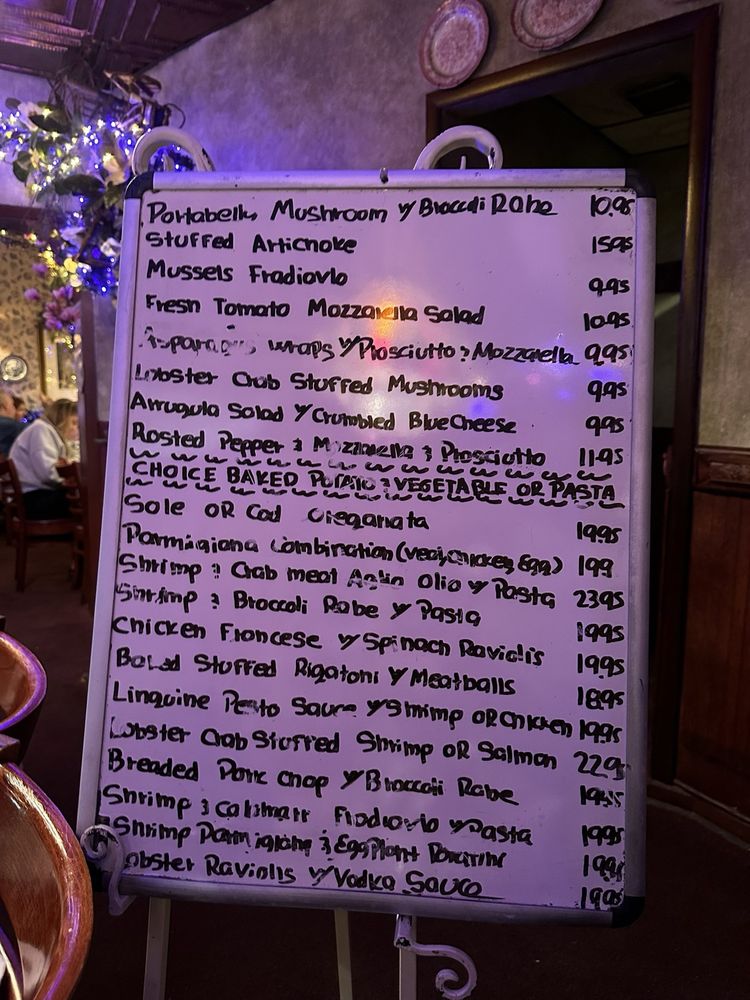 Portabello Mushroom w/ Broccoli Rabe 10.95
Stuffed Artichoke 15.95
Mussels Fradiavlo 9.95
Fresh Tomato Mozzarella Salad 10.95
Asparagus wraps w/ Prosciutto & Mozzarella 9.95
Lobster Crab Stuffed Mushrooms 9.95
Arrugula Salad w/ Crumbled Blue Cheese 9.95
Rosted Pepper & Mozzarella & Prosciutto 11.95
CHOICE BAKED POTATO & VEGETABLE OR PASTA
Sole OR Cod Oreganata 19.95
Parmigiana Combination (veal, chicken, Egg) 199
Shrimp & Crab meat Aglio Olio w/ Pasta 23.95
Shrimp & Broccoli Rabe w/ Pasta 19.95
Chicken Francese w/ Spinach Raviolis 19.95
Baked Stuffed Rigatoni w/ Meatballs 18.95
Linguine Pesto Sauce w/ Shrimp OR Chicken 19.95
Lobster Crab Stuffed Shrimp OR Salmon 22.95
Breaded Pork Chop w/ Broccoli Rabe 19.95
Shrimp & Calamari Fradiavlo w/ Pasta 19.95
Shrimp Parmigiana & Eggplant 19.95
Lobster Raviolis w/ Vodka Sauce 19.95